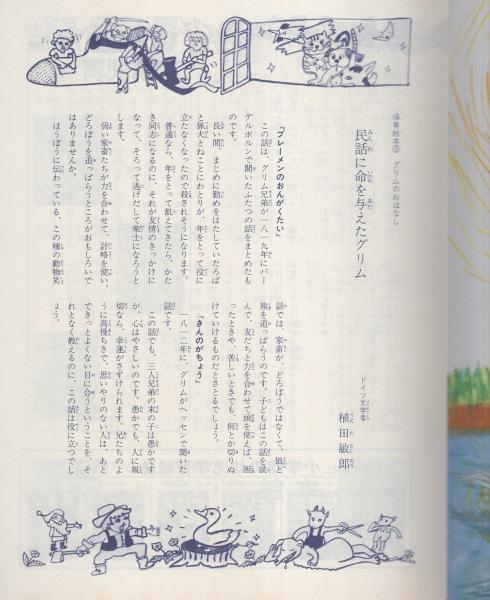 保育絵本⑤　グリムのおはなし
民話に命を与えたグリム
ドイツ文学者
植田敏郎
「ブレーメンのおんがくたい」
この話は、グリム兄弟が一八一九年にパー
デルボルンで聞いたふたつの話をまとめたも
のです。
長い間、まじめに勤めをはたしていたろば
と猟犬とねことにわとりが、年をとって役に
立たなくなったので殺されそうになります。
普通なら、年をとって飢えてきたら、かた
き同志になるのに、それが友情のきっかけに
なって、そろって逃げだして楽士になろうと
します。
弱い家畜たちが力を合わせて、計略を使い、
どろぼうを追っぱらうところがおもしろいで
はありませんか。
ほうぼうに伝わっている、この種の動物笑
話では、家畜が、どろぼうではなくて、狼と
熊を追っぱらうのです。子どもはこの話を読
んで、友だちと力を合わせて頭を使えば、困
ったときや、苦しいときでも、何とか切りぬ
けていけるものだとさとるでしょう。
「きんのがちょう」
一八一二年に、グリムがヘッセンで聞いた
話です。
この話でも、三人兄弟の末の子は愚かです
が、心はやさしいのです。愚かでも、人に親
切なら、幸運がさずけられます。兄たちのよ
うに高慢ちきで、思いやりのない人は、あと
できっとよくない目に合うということを、そ
れとなく教えるのに、この話は役に立つでし
ょう。